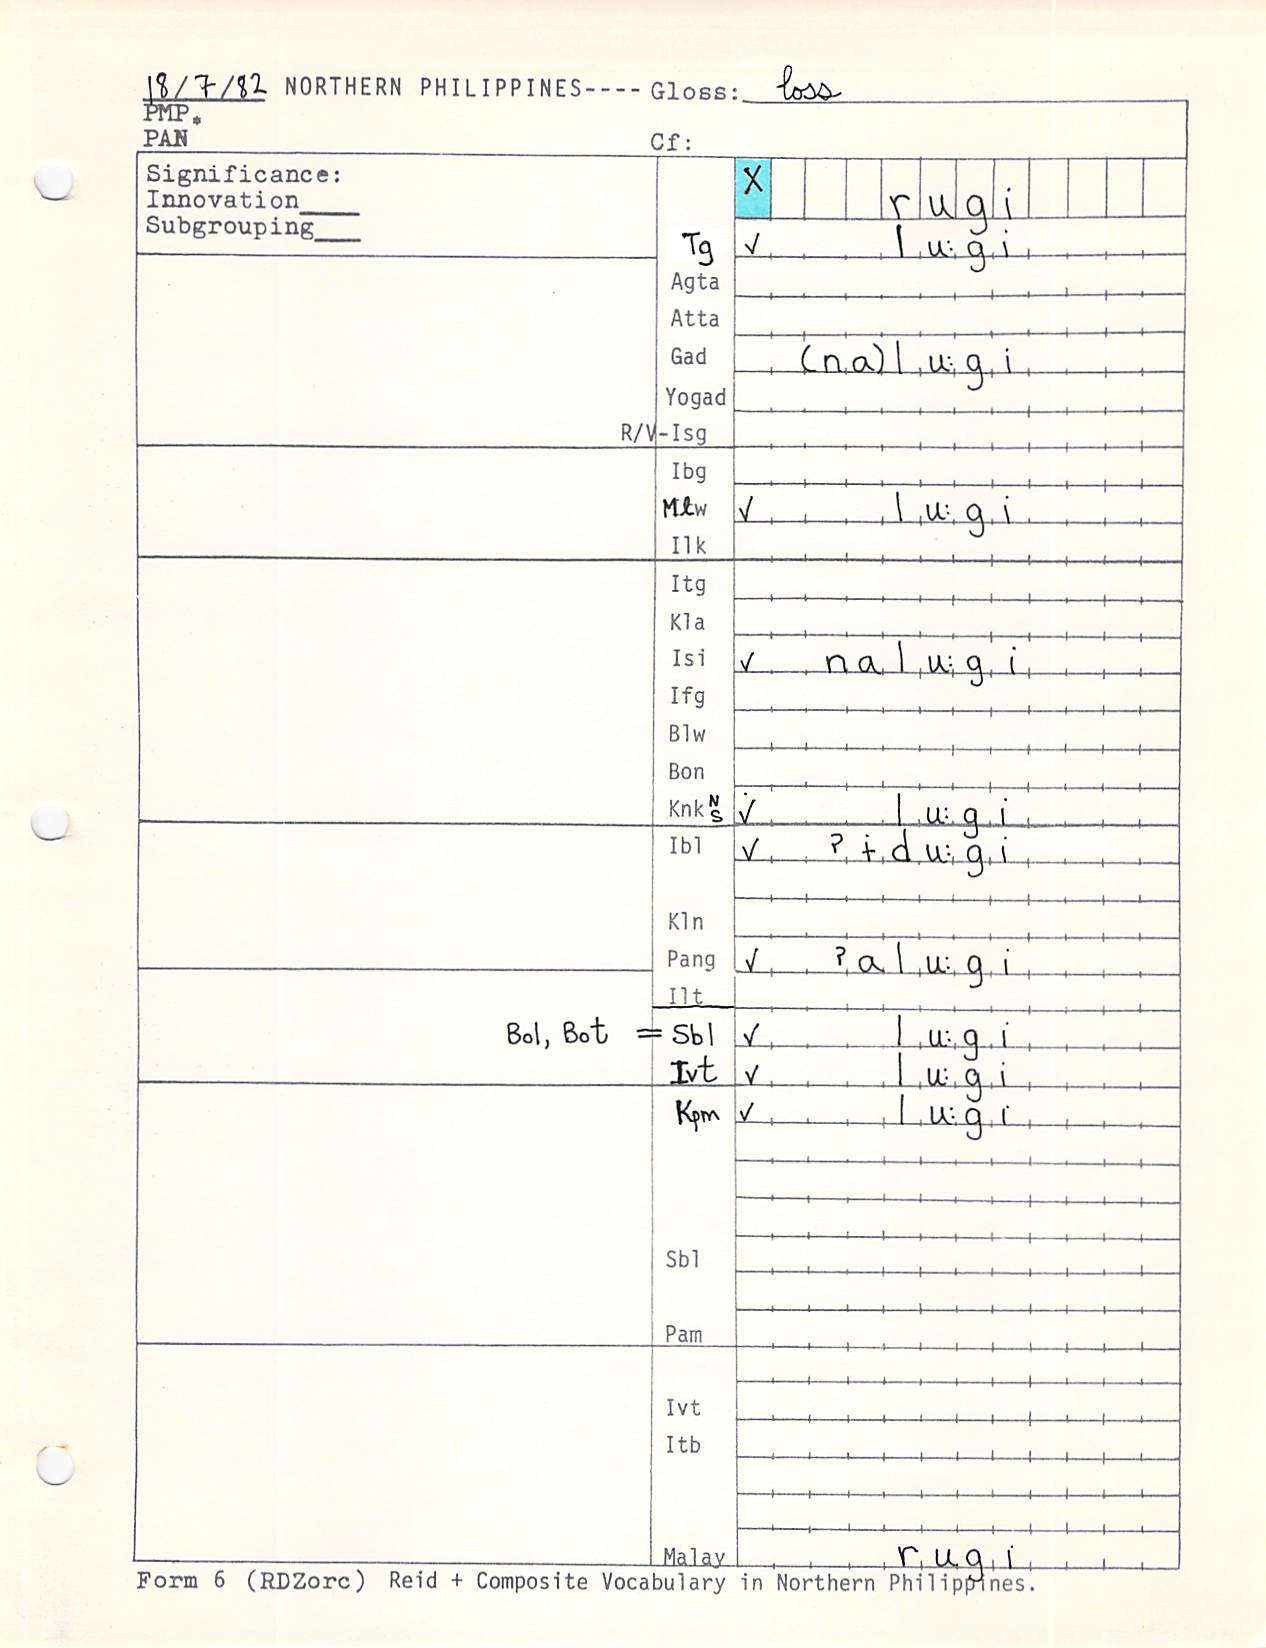 18/7/82 NORTHERN PHILIPPINES---- Gloss: loss
PMP*
PAN Cf:
Significance: X rugi
Innovation____
Subgrouping___
Tg ✓ lu:gi
Agta
Atta
Gad (na)lu:gi
Yogad
R/V-Isg
Ibg
Mlw ✓ lu:gi
Ilk
Itg
Kla
Isi ✓ nalu:gi
Ifg
Blw
Bon
Knk N S ✓ lu:gi
Ibl ✓ ʔɨdu:gi
Kln
Pang ✓ ʔalu:gi
Ilt
Bol, Bot = Sbl ✓ lu:gi
Ivt ✓ lu:gi
Kpm ✓ lu:gi
Sbl
Pam
Ivt
Itb
Malay rugi
Form 6 (RDZorc) Reid + Composite Vocabulary in Northern Philippines.